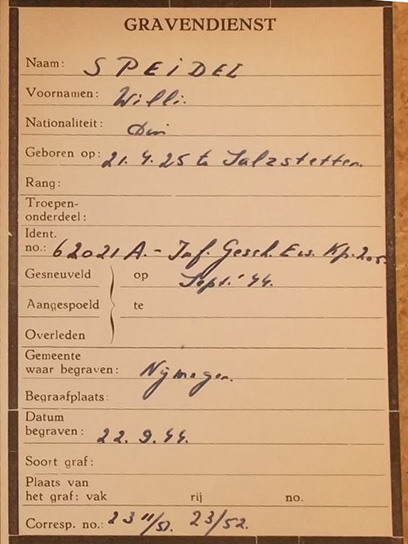 GRAVENDIENST
Naam: SPEIDEL
Voornamen: Willi.
Nationaliteit:
Geboren op: 21.4.25 te Salzstetten.
Rang:
Troepen-
onderdeel:
Ident.
no.: 62021 A.- Inf. Gesch. Ers. Kp. 205.
Gesneuveld op Sept. '44.
Aangespoeld te
Overleden
Gemeente
waar begraven: Nijmegen.
Begraafplaats:
Datum
begraven: 22.9.44.
Soort graf:
Plaats van
het graf: vak rij no.
Corresp. no.: 23 11/51. 23/52.